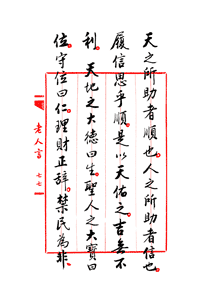 天之所助者順也人之所助者信也
履信思乎順是以天佑之吉无不
利　天地之大德曰生聖人之大寶曰
位守位曰仁理財正辭禁民為非
老人言　七七